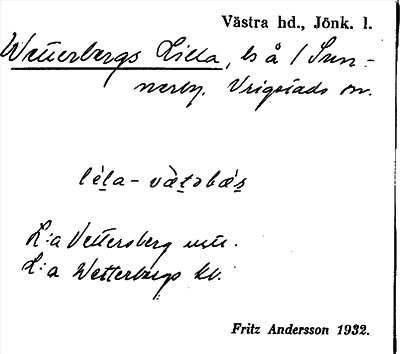 Västra hd., Jönk. l.
Wetterbergs Lilla, ls å / Sun-
nerby. Vrigstads sn.
lèla - vàtəbæs
L:a Vettersberg
L:a Wetterbergs kv.
Fritz Andersson 1932.